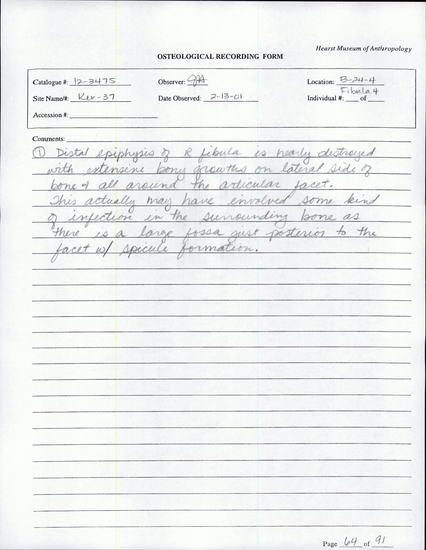 Hearst Museum of Anthropology
OSTEOLOGICAL RECORDING FORM
Catalogue #: 12-3475 Observer: Location: B-24-4
Fibula 4
Site Name/#: Ker-37 Date Observed: 2-13-01 Individual #: ___ of ___
Accession #:
Comments:
① Distal epiphysis of R fibula is nearly destroyed
with extensive bony growths on lateral side of
bone & all around the articular facet.
This actually may have envolved some kind
of infection in the surrounding bone as
there is a large fossa just posterior to the
facet w/ spicule formation.
Page 64 of 91